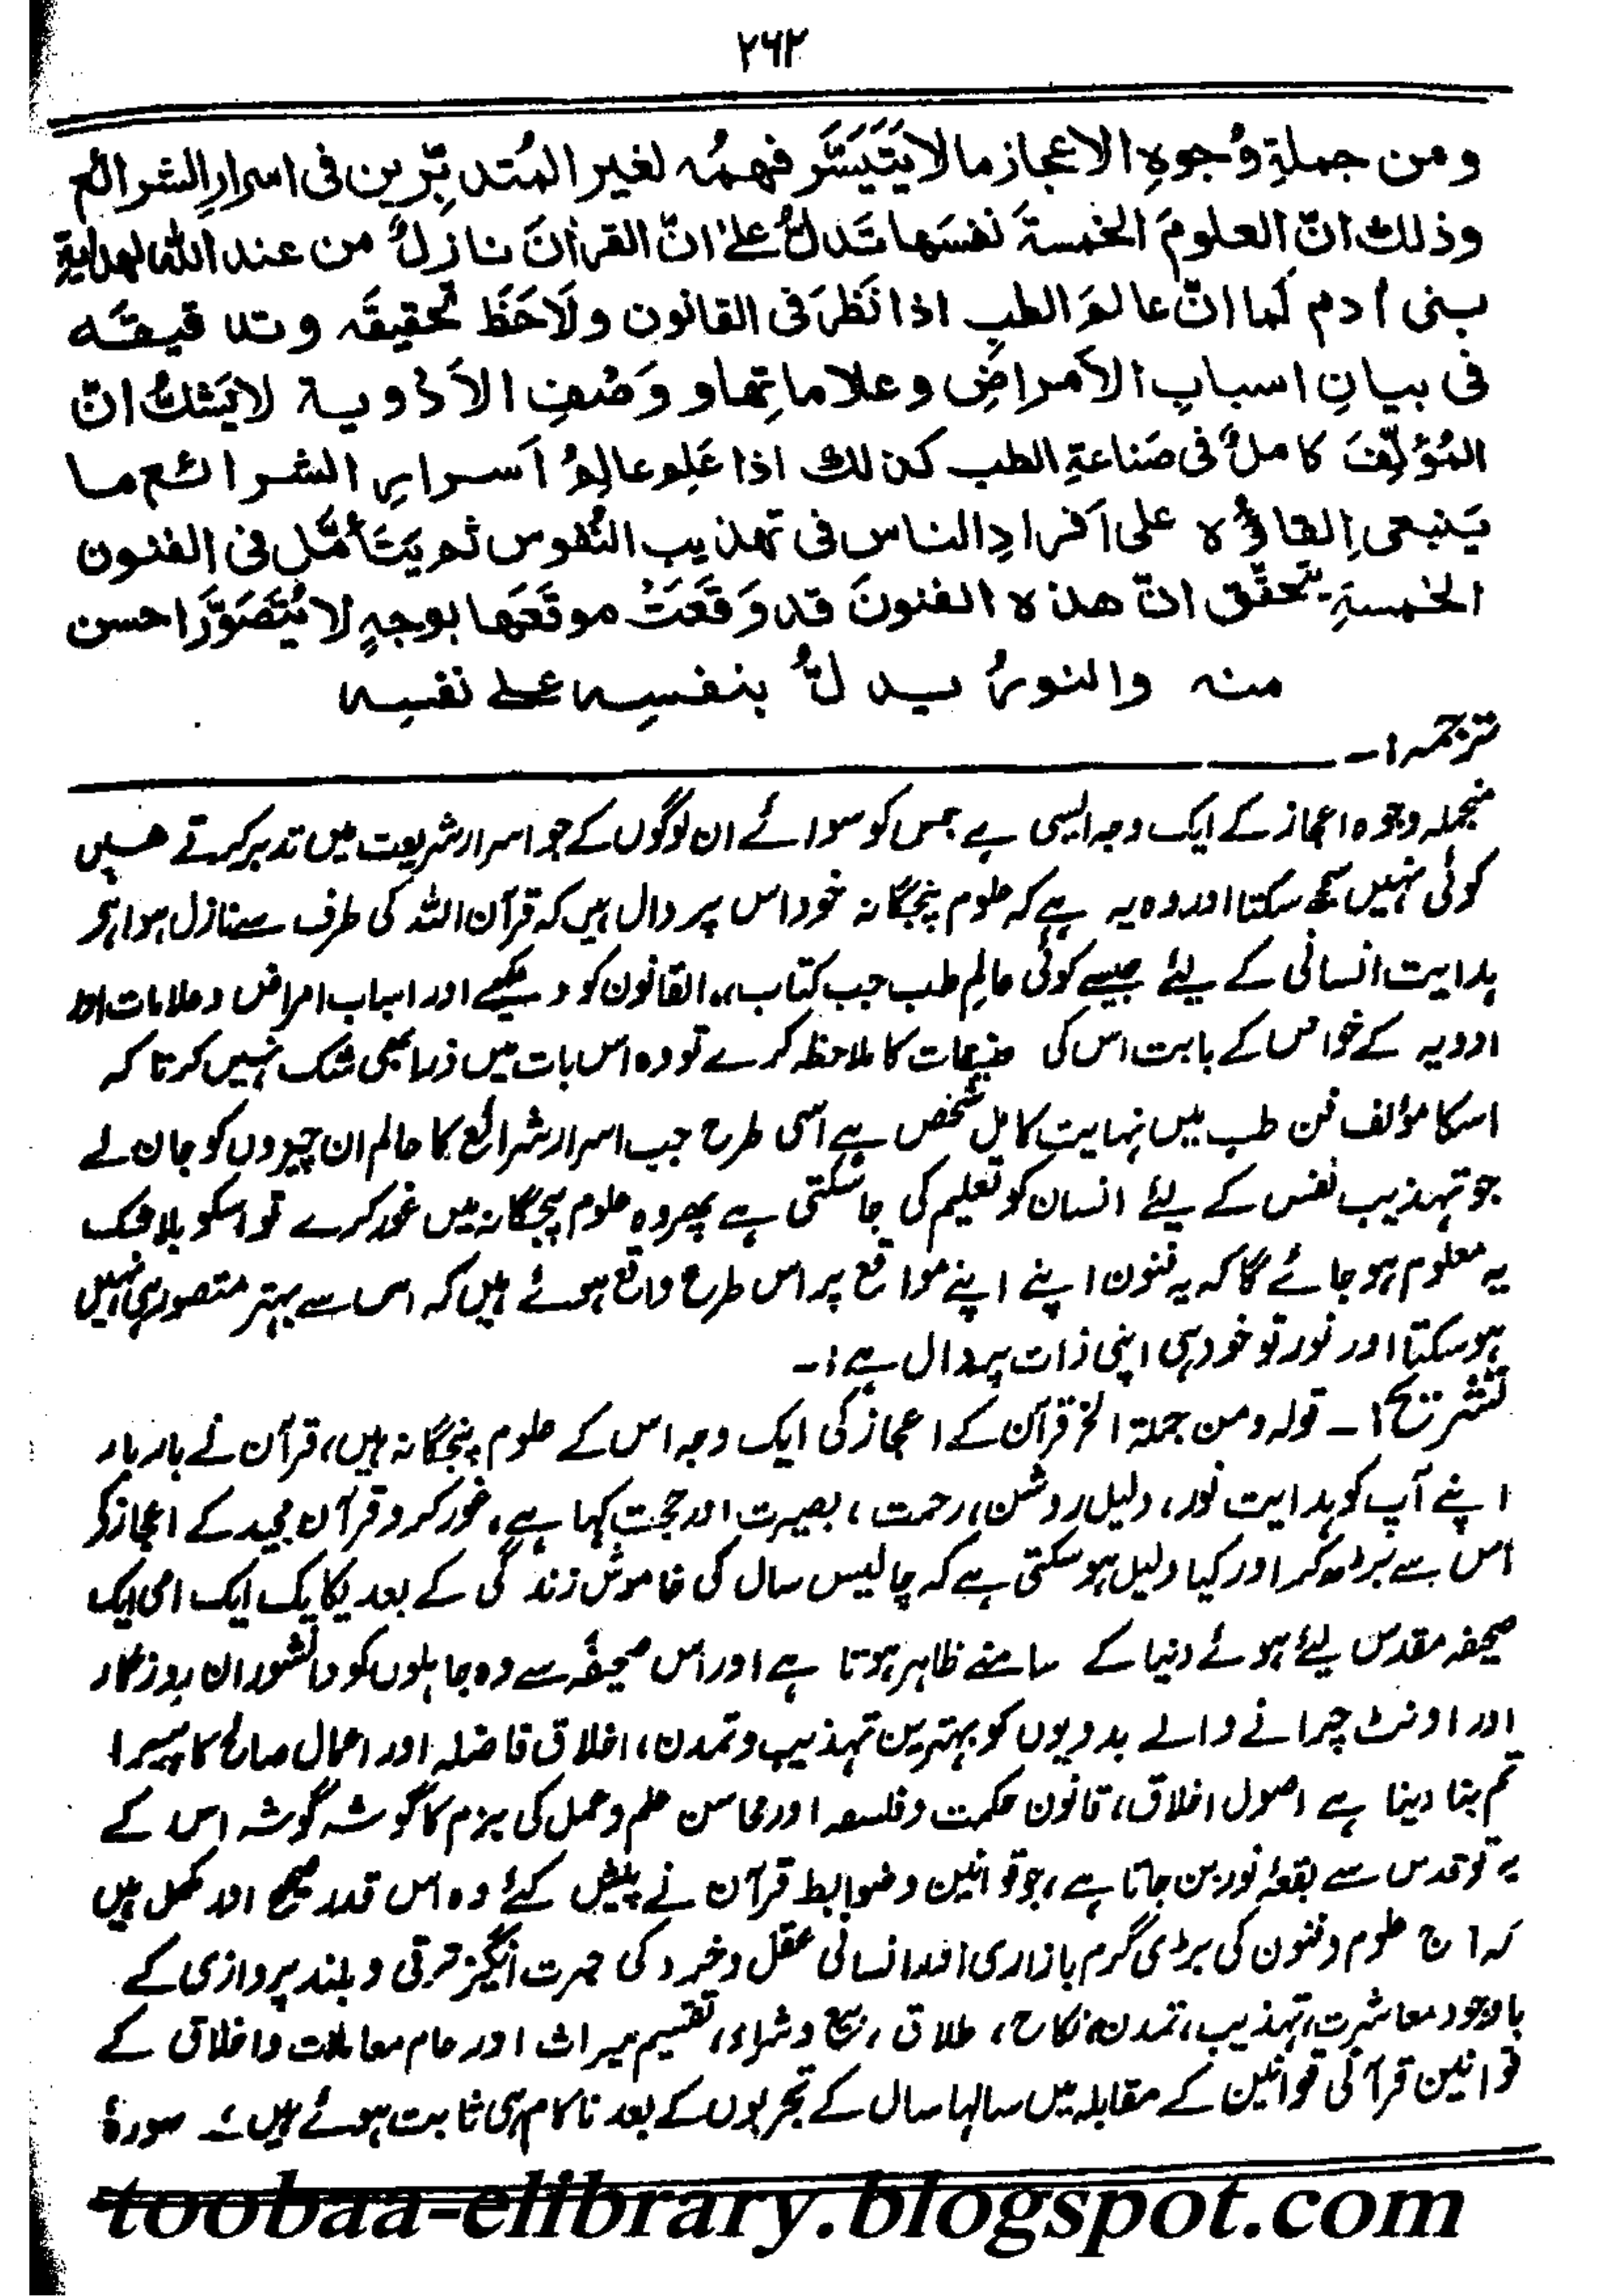 ۲۶۲
ومن جملةِ وُجوهِ الاعجاز مالا يَتَيَسَّر فهمُہ لغير المُتدبِّرين فی اسرارِ الشرائع
وذلك انّ العلومَ الخمسةَ نفسَها تَدلُّ علیٰ انّ القرأنَ نازلٌ من عند الله لهدايةِ
بنی أدم كما انّ عالِمَ الطبِ اذا نَظَرَ فی القانون ولَاحَظَ تحقيقَہ وتدقيقَہ
فی بيانِ اسبابِ الاَمراضِ وعلاماتِها و وَصْفِ الاَدْوية لا يَشكُّ انّ
المُؤلِّفَ كاملٌ فی صَناعةِ الطب كذلك اذا عَلِمَ عالِمُ اَسرارِ الشرائع ما
يَنبغی اِلقاؤُه علی اَفرادِ الناس فی تهذيب النُّفوس ثم يَتَأمَّل فی الفنون
الخمسةِ يتحقّق انّ هذه الفنونَ قد وَقَعَتْ موقَعَها بوجهٍ لا يُتَصَوَّر احسن
منہ والنورُ يدلُّ بنفسِہ علےٰ نفسِہ
ترجمہ:۔
منجملہ وجوہ اعجاز کے ایک وجہ ایسی ہے جس کو سوائے ان لوگوں کے جو اسرار شریعت میں تدبر کرتے ھیں
کوئی نہیں سمجھ سکتا اور وہ یہ ہے کہ علوم پنجگانہ خود اس پر دال ہیں کہ قرآن اللہ کی طرف سے نازل ہوا ہے
ہدایت انسانی کے لیئے جیسے کوئی عالم طب جب کتاب ،،القانون کو دیکھے اور اسباب امراض وعلامات اور
ادویہ کے خواص کے بابت اس کی کا ملاحظہ کرے تو وہ اس بات میں ذرا بھی شک نہیں کرتا کہ
اسکا مؤلف فن طب میں نہایت کامل شخص ہے اسی طرح جب اسرار شرائع کا عالم ان چیزوں کو جان لے
جو تہذیب نفس کے لیئے انسان کو تعلیم کی جاسکتی ہے پھر وہ علوم پنجگانہ میں غور کرے تو اسکو بلا شک
یہ معلوم ہو جائے گا کہ یہ فنون اپنے اپنے مواقع پر اس طرح واقع ہوئے ہیں کہ اس سے بہتر متصور ہی نہیں
ہو سکتا اور نور تو خود ہی اپنی ذات پر دال ہے:۔
تشریح:۔ قولہ ومن جملۃ الخ قرآن کے اعجاز کی ایک وجہ اس کے علوم پنجگانہ ہیں، قرآن نے بار بار
اپنے آپ کو ہدایت نور، دلیل روشن، رحمت، بصیرت اور حجت کہا ہے، غور کرو قرآن مجید کے اعجاز کی
اس سے بڑھ کر اور کیا دلیل ہو سکتی ہے کہ چالیس سال کی خاموش زندگی کے بعد یکایک ایک امی ایک
صحیفہ مقدس لیئے ہوئے دنیا کے سامنے ظاہر ہوتا ہے اور اس صحیفہ سے وہ جاہلوں کو دانشوران روزگار
اور اونٹ چرانے والے بدویوں کو بہترین تہذیب وتمدن، اخلاق فاضلہ اور اعمال صالح کا پیرا
تم بنا دینا ہے اصول اخلاق، قانون حکمت وفلسفہ اور محاسن علم وعمل کی بزم کا گوشہ گوشہ اس کے
پر تو قدس سے بقعۂ نور بن جاتا ہے، جو قوانین وضوابط قرآن نے پیش کیئے وہ اس قدر صحیح اور مکمل ہیں
کہ آج علوم وفنون کی بڑی گرم بازاری اور انسانی عقل وخرد کی حیرت انگیز ترقی وبلند پروازی کے
باوجود معاشرت، تہذیب، تمدن، نکاح، طلاق، بیع وشراء، تقسیم میراث اور عام معاملات واخلاق کے
قوانین قرآنی قوانین کے مقابلہ میں سالہا سال کے تجربوں کے بعد ناکام ہی ثابت ہوئے ہیں، سورۂ
toobaa-elibrary.blogspot.com